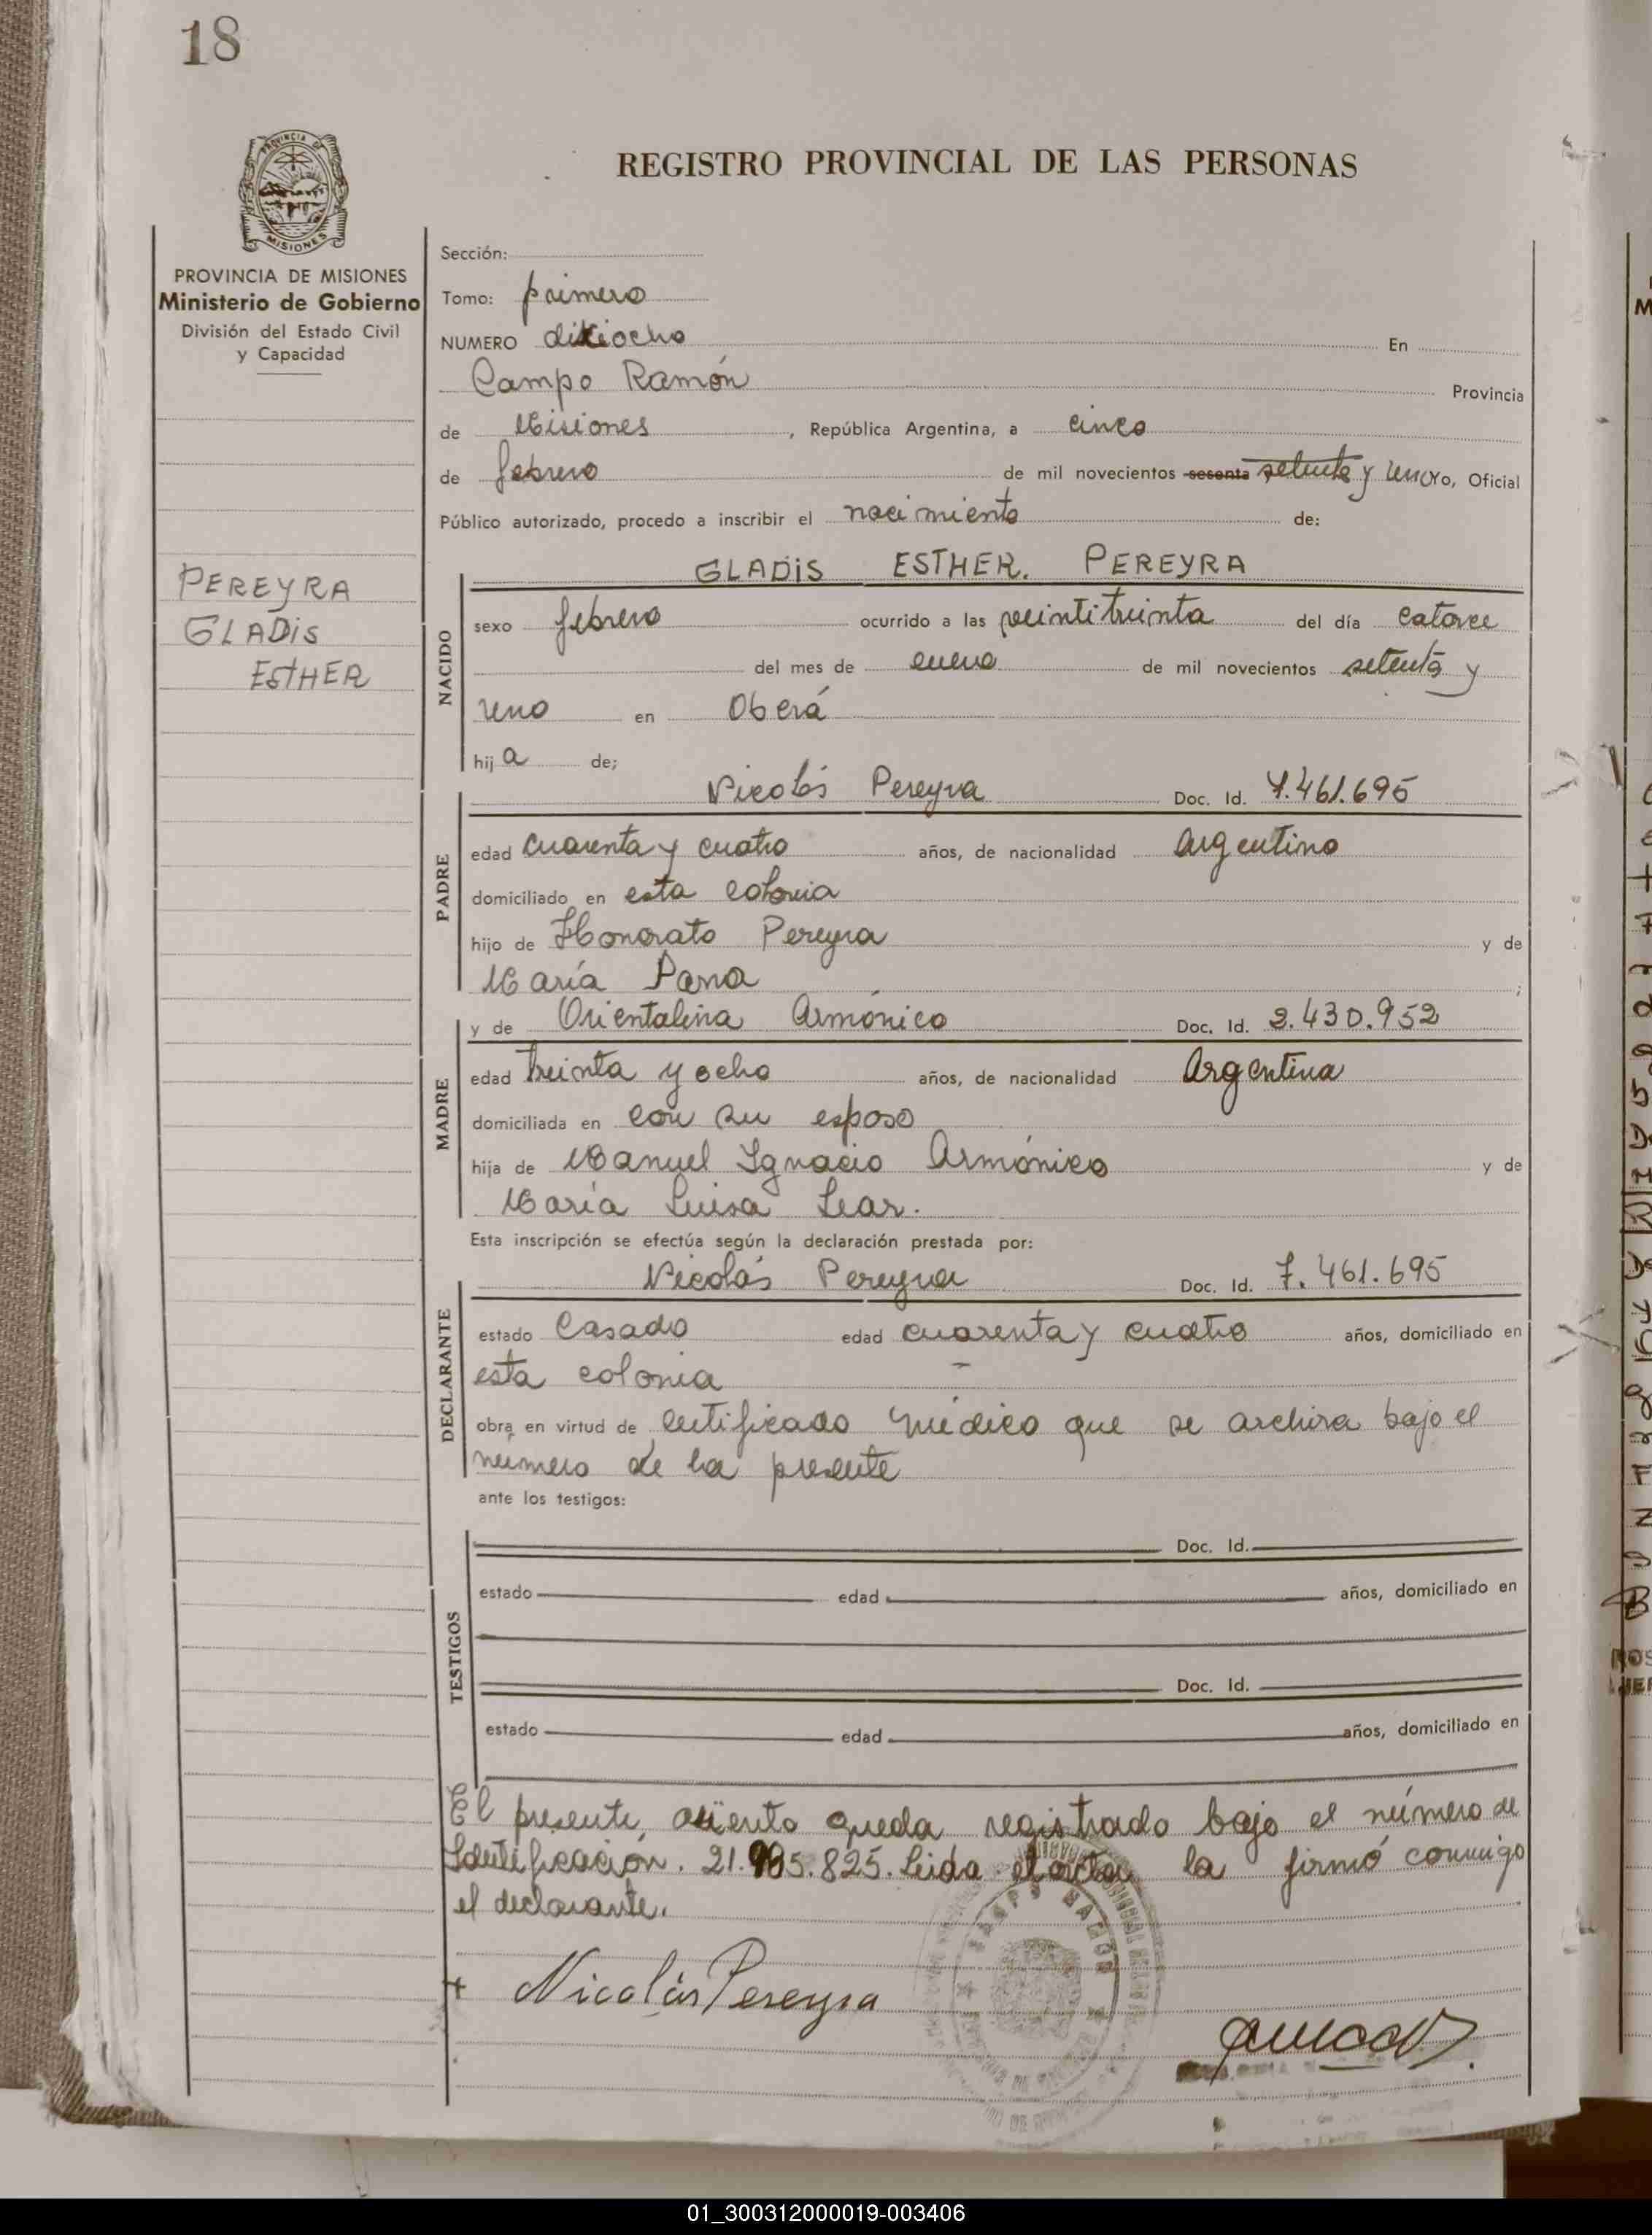 18
PROVINCIA DE
MISIONES
REGISTRO PROVINCIAL DE LAS PERSONAS
PROVINCIA DE MISIONES
Ministerio de Gobierno
División del Estado Civil
y Capacidad
PEREYRA
GLADiS
ESTHER
Sección:
Tomo: primero
NUMERO dieciocho En
Campo Ramón Provincia
de Misiones, República Argentina, a cinco
de febrero de mil novecientos sesenta setenta y uno, Oficial
Público autorizado, procedo a inscribir el nacimiento de:
NACIDO
GLADiS ESTHER. PEREYRA
sexo febrero ocurrido a las veintitreinta del día catorce
del mes de enero de mil novecientos setenta y
uno en Oberá
hija de;
PADRE
Nicolás Pereyra Doc. Id. 7.461.695
edad cuarenta y cuatro años, de nacionalidad argentino
domiciliado en esta colonia
hijo de Honorato Pereyra y de
María Pana;
MADRE
y de Orientalina Armónico Doc. Id. 2.430.952
edad treinta y ocho años, de nacionalidad Argentina
domiciliada en con su esposo
hija de Manuel Ignacio Armónico y de
María Luisa Lear.
Esta inscripción se efectúa según la declaración prestada por:
DECLARANTE
Nicolás Pereyra Doc. Id. 7.461.695
estado Casado edad cuarenta y cuatro años, domiciliado en
esta colonia
obra en virtud de certificado médico que se archiva bajo el
número de la presente
ante los testigos:
TESTIGOS
Doc. Id.
estado edad años, domiciliado en
Doc. Id.
estado edad años, domiciliado en
El presente asiento queda registrado bajo el número de
Identificación. 21.905.825. Leida el acta la firmó conmigo
el declarante.
Nicolás Pereyra
01_300312000019-003406